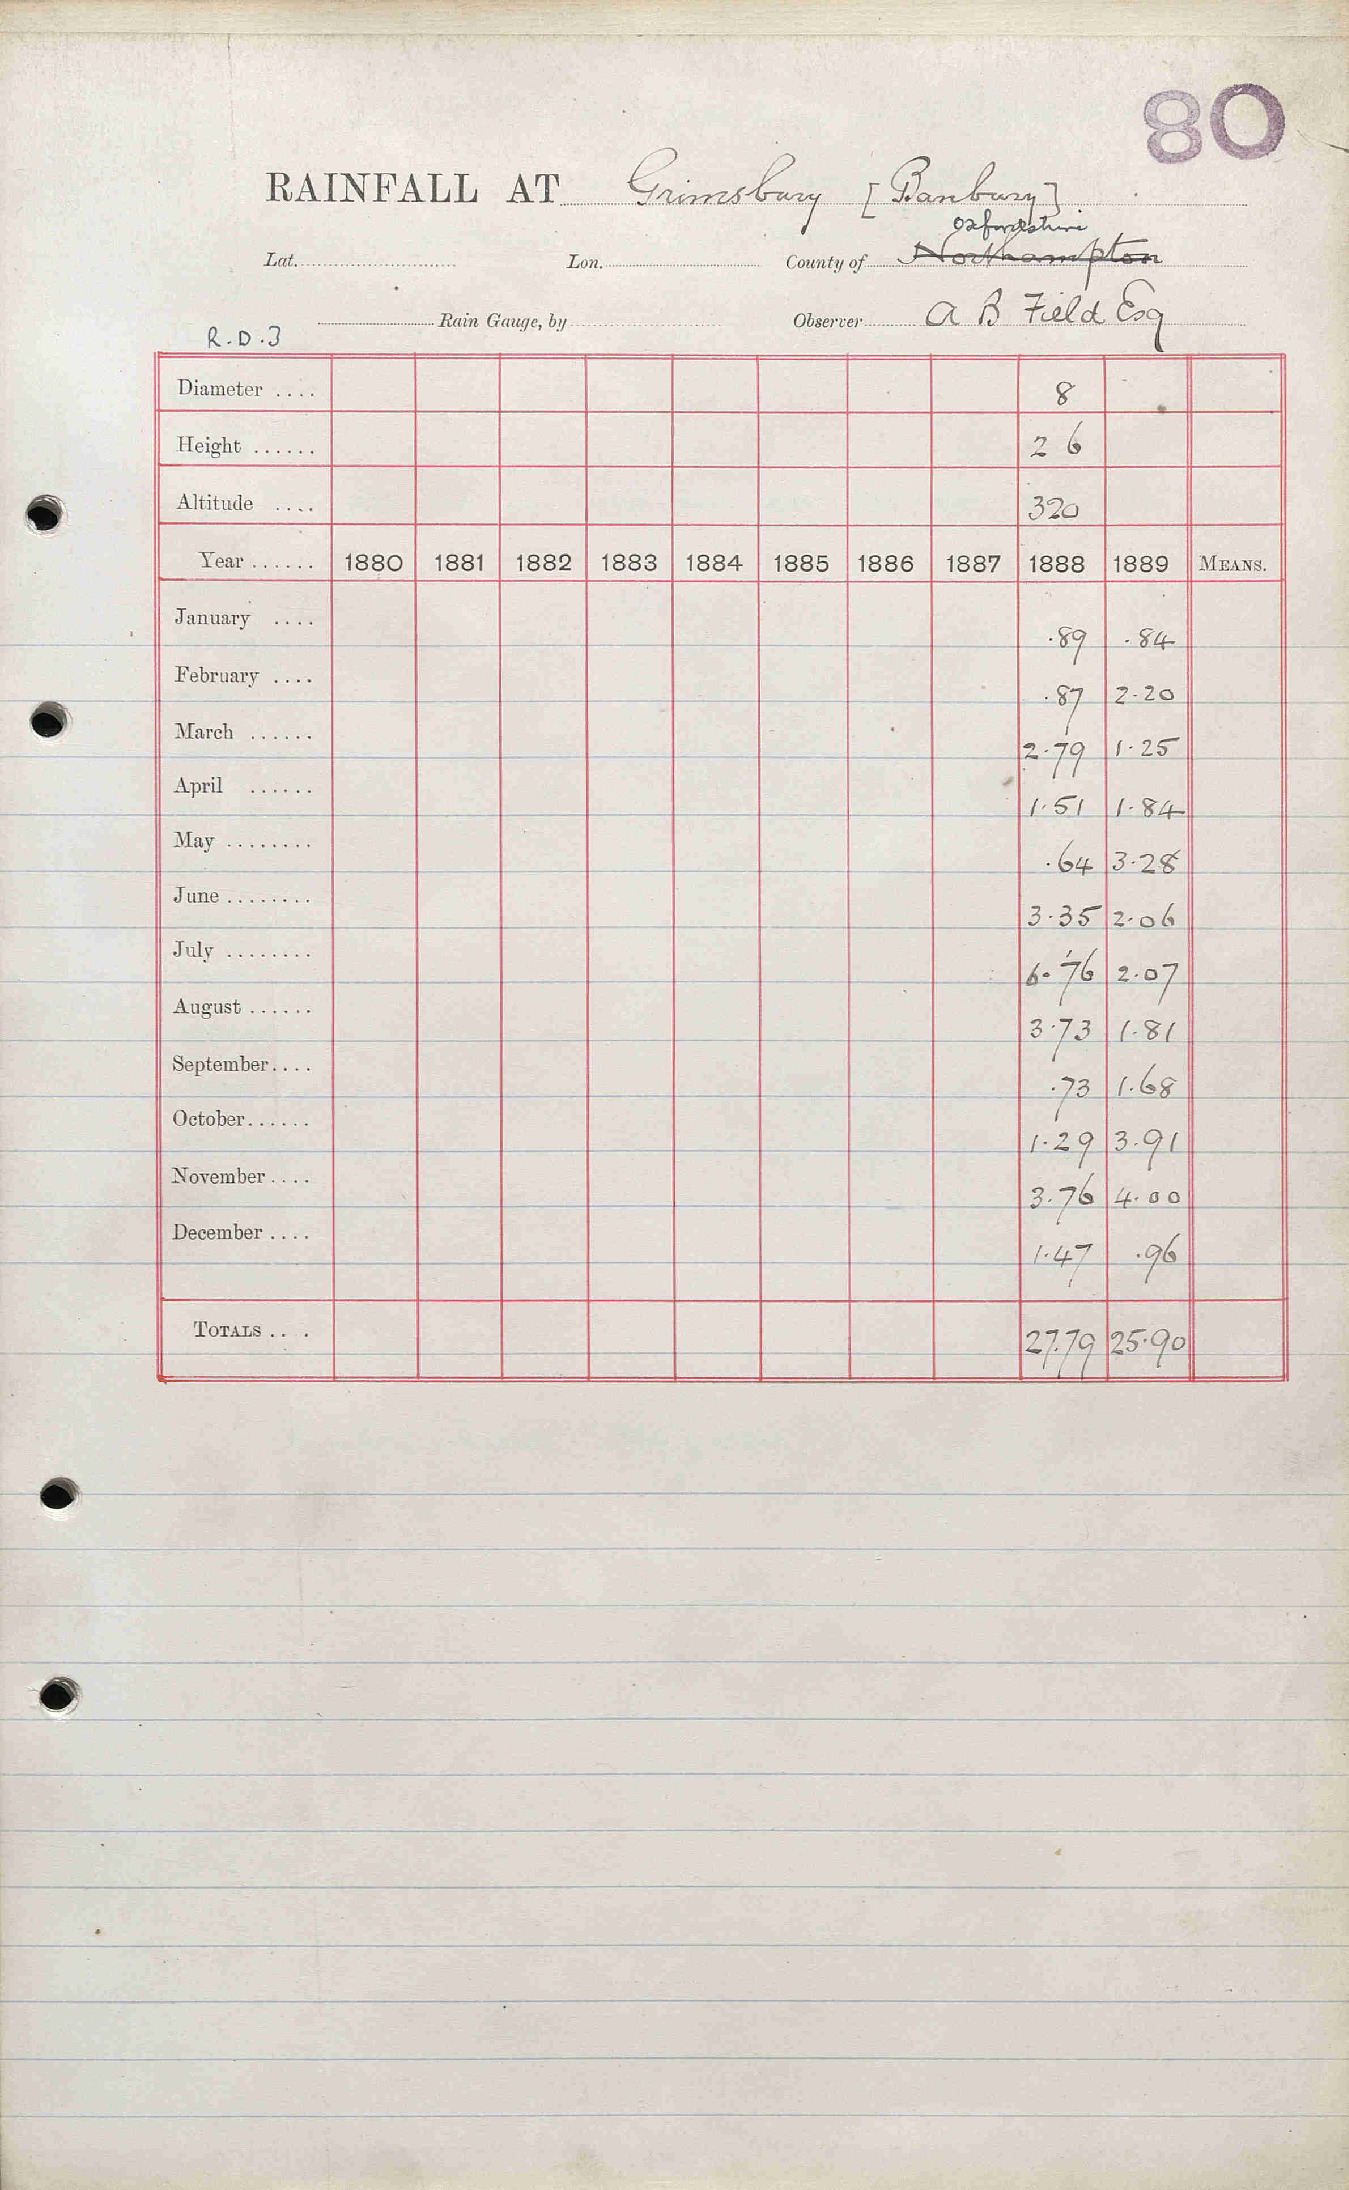 80
RAINFALL AT Grimsbury [Banbury]
Oxfordshire
Lat. Lon. County of Northampton
Rain Gauge, by Observer A B Field Esq
R.D.3
Diameter .... 8
Height ...... 2 6
Altitude .... 320
Year ...... 1880 1881 1882 1883 1884 1885 1886 1887 1888 1889 MEANS.
January .... .89 .84
February .... .87 2.20
March ...... 2.79 1.25
April ...... 1.51 1.84
May ........ .64 3.28
June ........ 3.35 2.06
July ........ 6.76 2.07
August ...... 3.73 1.81
September.... .73 1.68
October...... 1.29 3.91
November.... 3.76 4.00
December .... 1.47 .96
TOTALS .. . 27.79 25.90